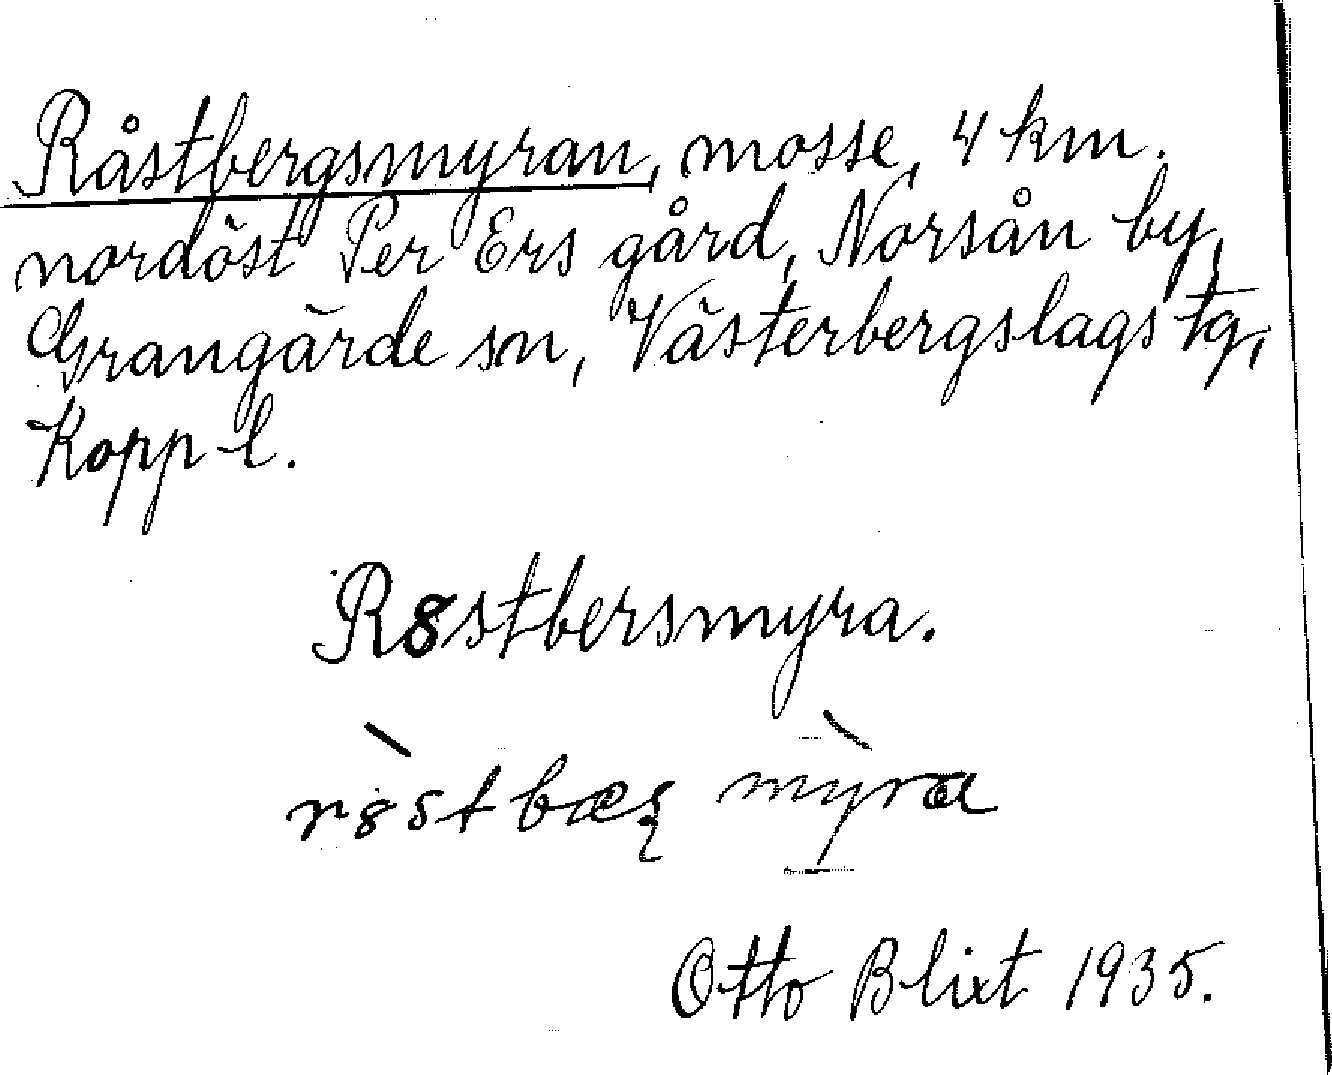 Råstbergsmyran, mosse, 4 km.
nordöst Per Ers gård, Norsån by,
Grangärde sn, Västerbergslags tg,
Kopp l.
R8stbersmyra.
Otto Blixt 1935.